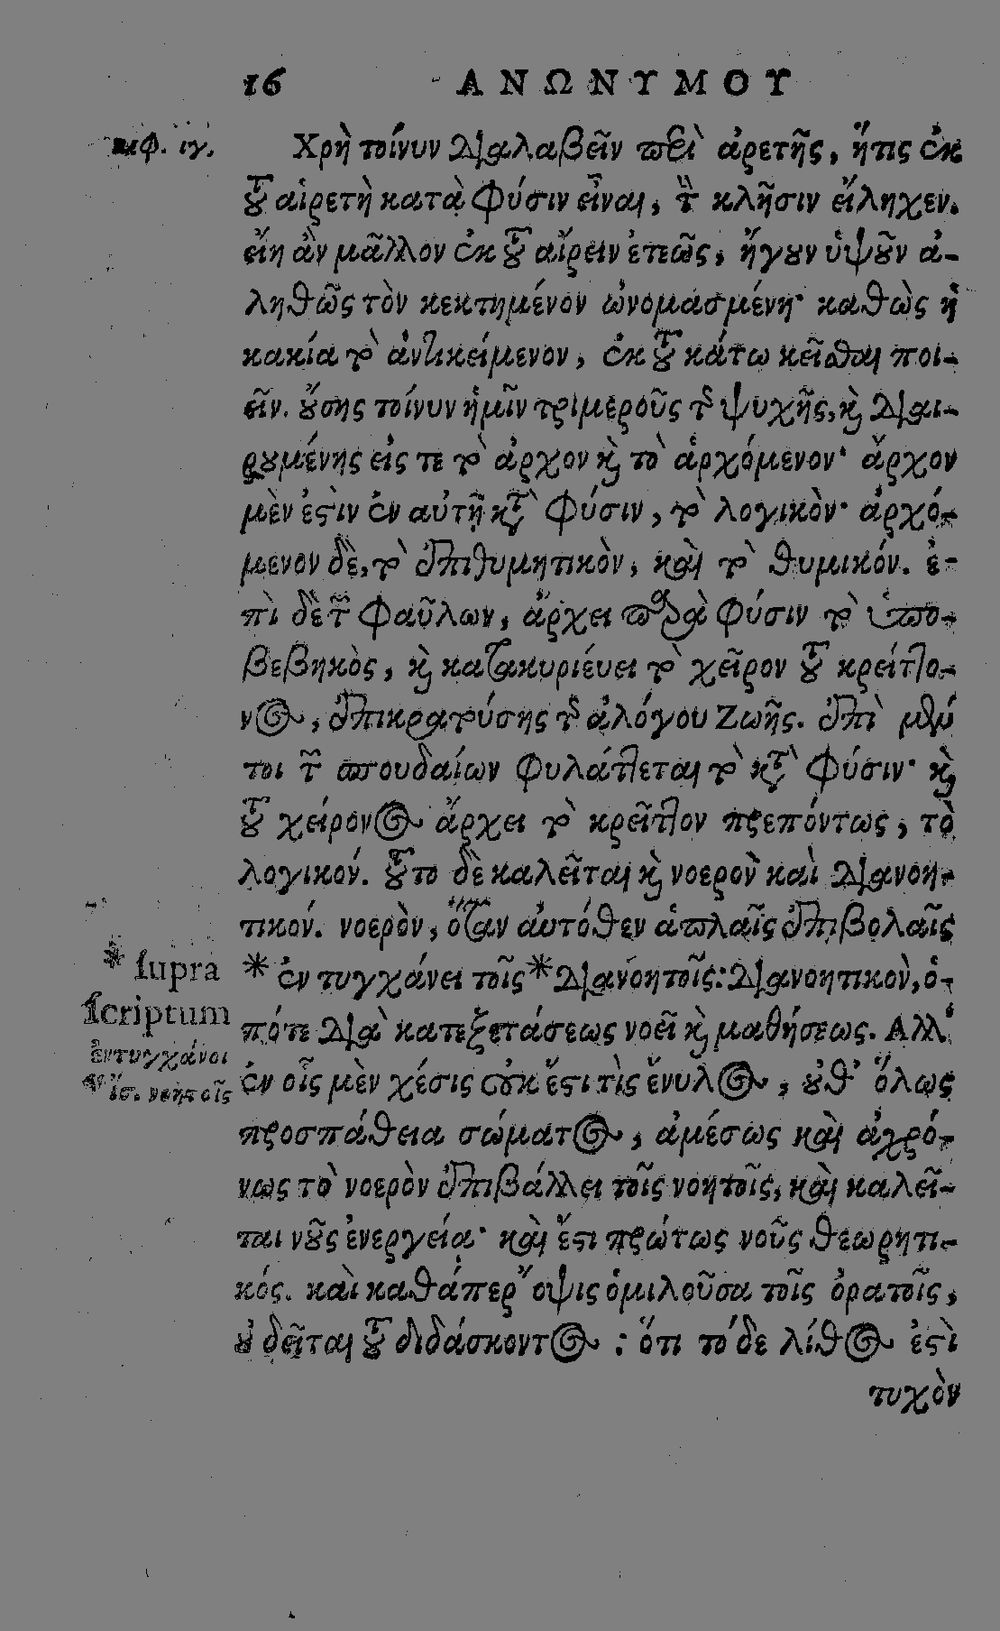 16 ΑΝΩΝΥΜΟΥ
κεφ. ιγ.
Χρὴ τοίνυν διαλαβεῖν περὶ ἀρετῆς, ἥτις ἐκ
τοῦ αἱρετὴ κατὰ φύσιν εἶναι, τὴν κλῆσιν εἴληχεν.
εἴη ἂν μᾶλλον ἐκ τοῦ αἴρειν ἐτεῶς, ἤγουν ὑψοῦν ἀ-
ληθῶς τὸν κεκτημένον ὠνομασμένη· καθὼς ἡ
κακία τὸ ἀντικείμενον, ἐκ τοῦ κάτω κεῖσθαι ποι-
εῖν. οὔσης τοίνυν ἡμῖν τριμεροῦς τῆς ψυχῆς, καὶ διαι-
ρουμένης εἰς τε τὸ ἄρχον καὶ τὸ ἀρχόμενον· ἄρχον
μὲν ἐστὶν ἐν αὐτῇ κατὰ φύσιν, τὸ λογικὸν· ἀρχό-
μενον δὲ, τὸ ἐπιθυμητικὸν, καὶ τὸ θυμικόν. ἐ-
πὶ δὲ τῶν φαύλων, ἄρχει παρὰ φύσιν τὸ ὑπο-
βεβηκὸς, καὶ κατακυριεύει τὸ χεῖρον τοῦ κρείττο-
νος, ἐπικρατούσης τῆς ἀλόγου ζωῆς. ἐπὶ μέν
τοι τῶν σπουδαίων φυλάττεται τὸ κατὰ φύσιν· καὶ
τοῦ χείρονος ἄρχει τὸ κρεῖττον πρεπόντως, τὸ
λογικόν. τοῦτο δὲ καλεῖται καὶ νοερὸν καὶ διανοη-
τικόν. νοερὸν, ὅταν αὐτόθεν ἁπλαῖς ἐπιβολαῖς
* ἐν τυγχάνει τοῖς * διανοητοῖς: διανοητικὸν, ὁ-
πότε διὰ κατεξετάσεως νοεῖ καὶ μαθήσεως. Ἀλλ'
ἐν οἷς μὲν χέσις οὐκ ἔστι τὶς ἔνυλος, οὐθ' ὅλως
προσπάθεια σώματος, ἀμέσως καὶ ἀχρό-
νως τὸ νοερὸν ἐπιβάλλει τοῖς νοητοῖς, καὶ καλεῖ-
ται νοῦς ἐνεργείᾳ· καὶ ἔστι πρώτως νοῦς θεωρητι-
κός. καὶ καθάπερ ὄψις ὁμιλοῦσα τοῖς ὁρατοῖς,
οὐ δεῖται τοῦ διδάσκοντος: ὅτι τόδε λίθος ἐστὶ
τυχὸν
* supra
scriptum
ἐντυγχάνοι
ἴσ. νοητοῖς